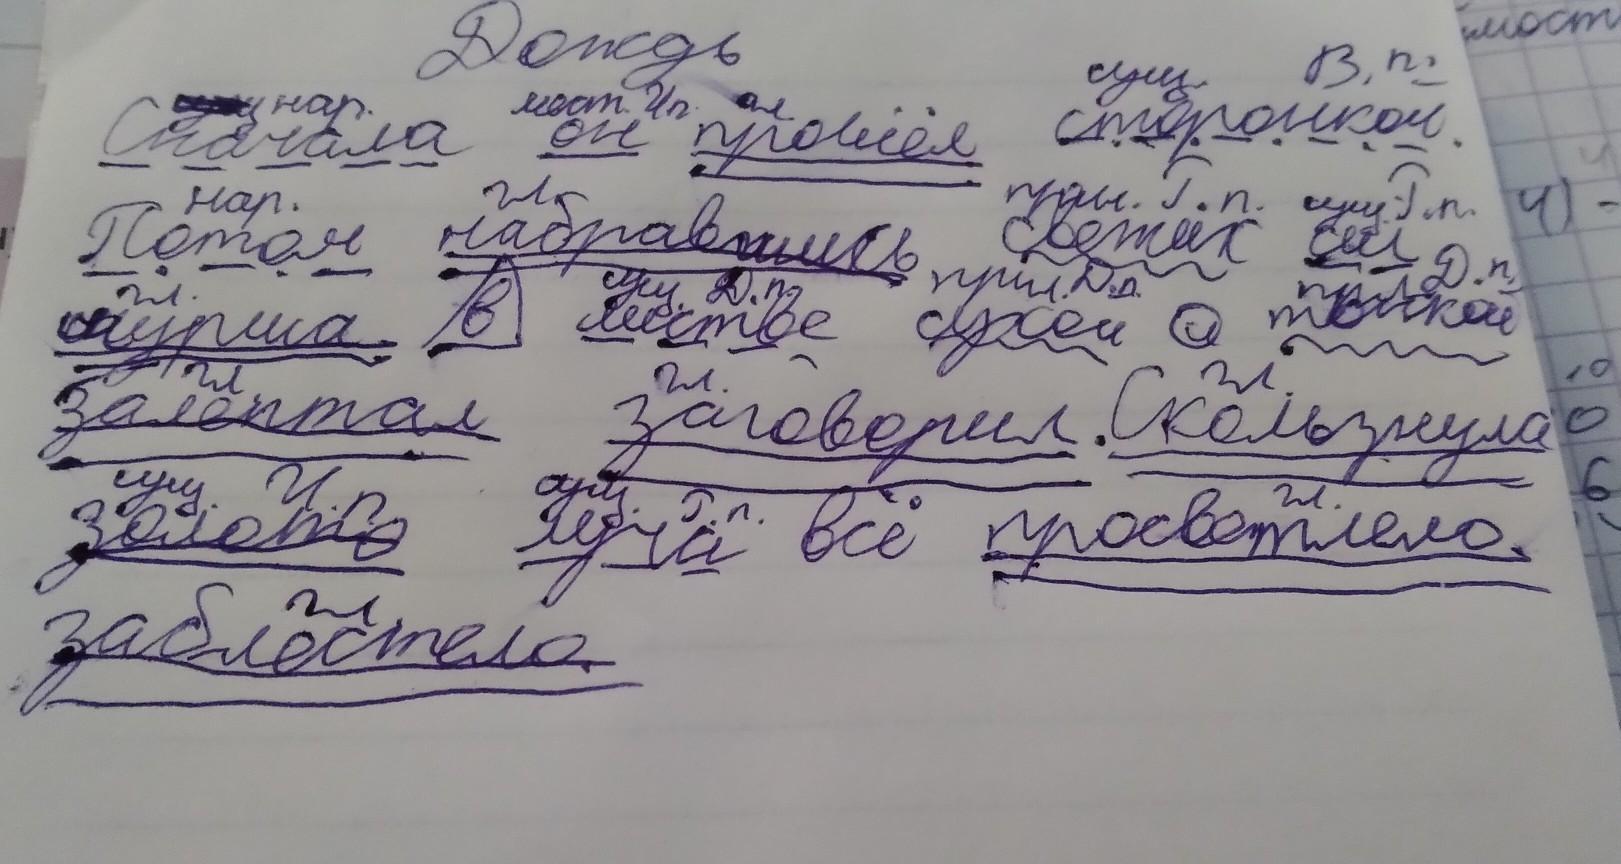 Дождь
нар. мест. И.п. гл сущ. В.п.
Сначала он прошёл сторонкой.
нар. гл. прил. Г.п. сущ. Г.п.
Потом набравшись свежих сил
гл. сущ. Д.п. прил. Д.п. прил Д.п.
шурша в листве сухой и тонкой
гл гл. гл.
залептал заговорил. Скользнула
сущ. И.п. сущ. Г.п. гл.
золото луча всё просветлело.
гл
заблестело.
мост
4)
10
0
6